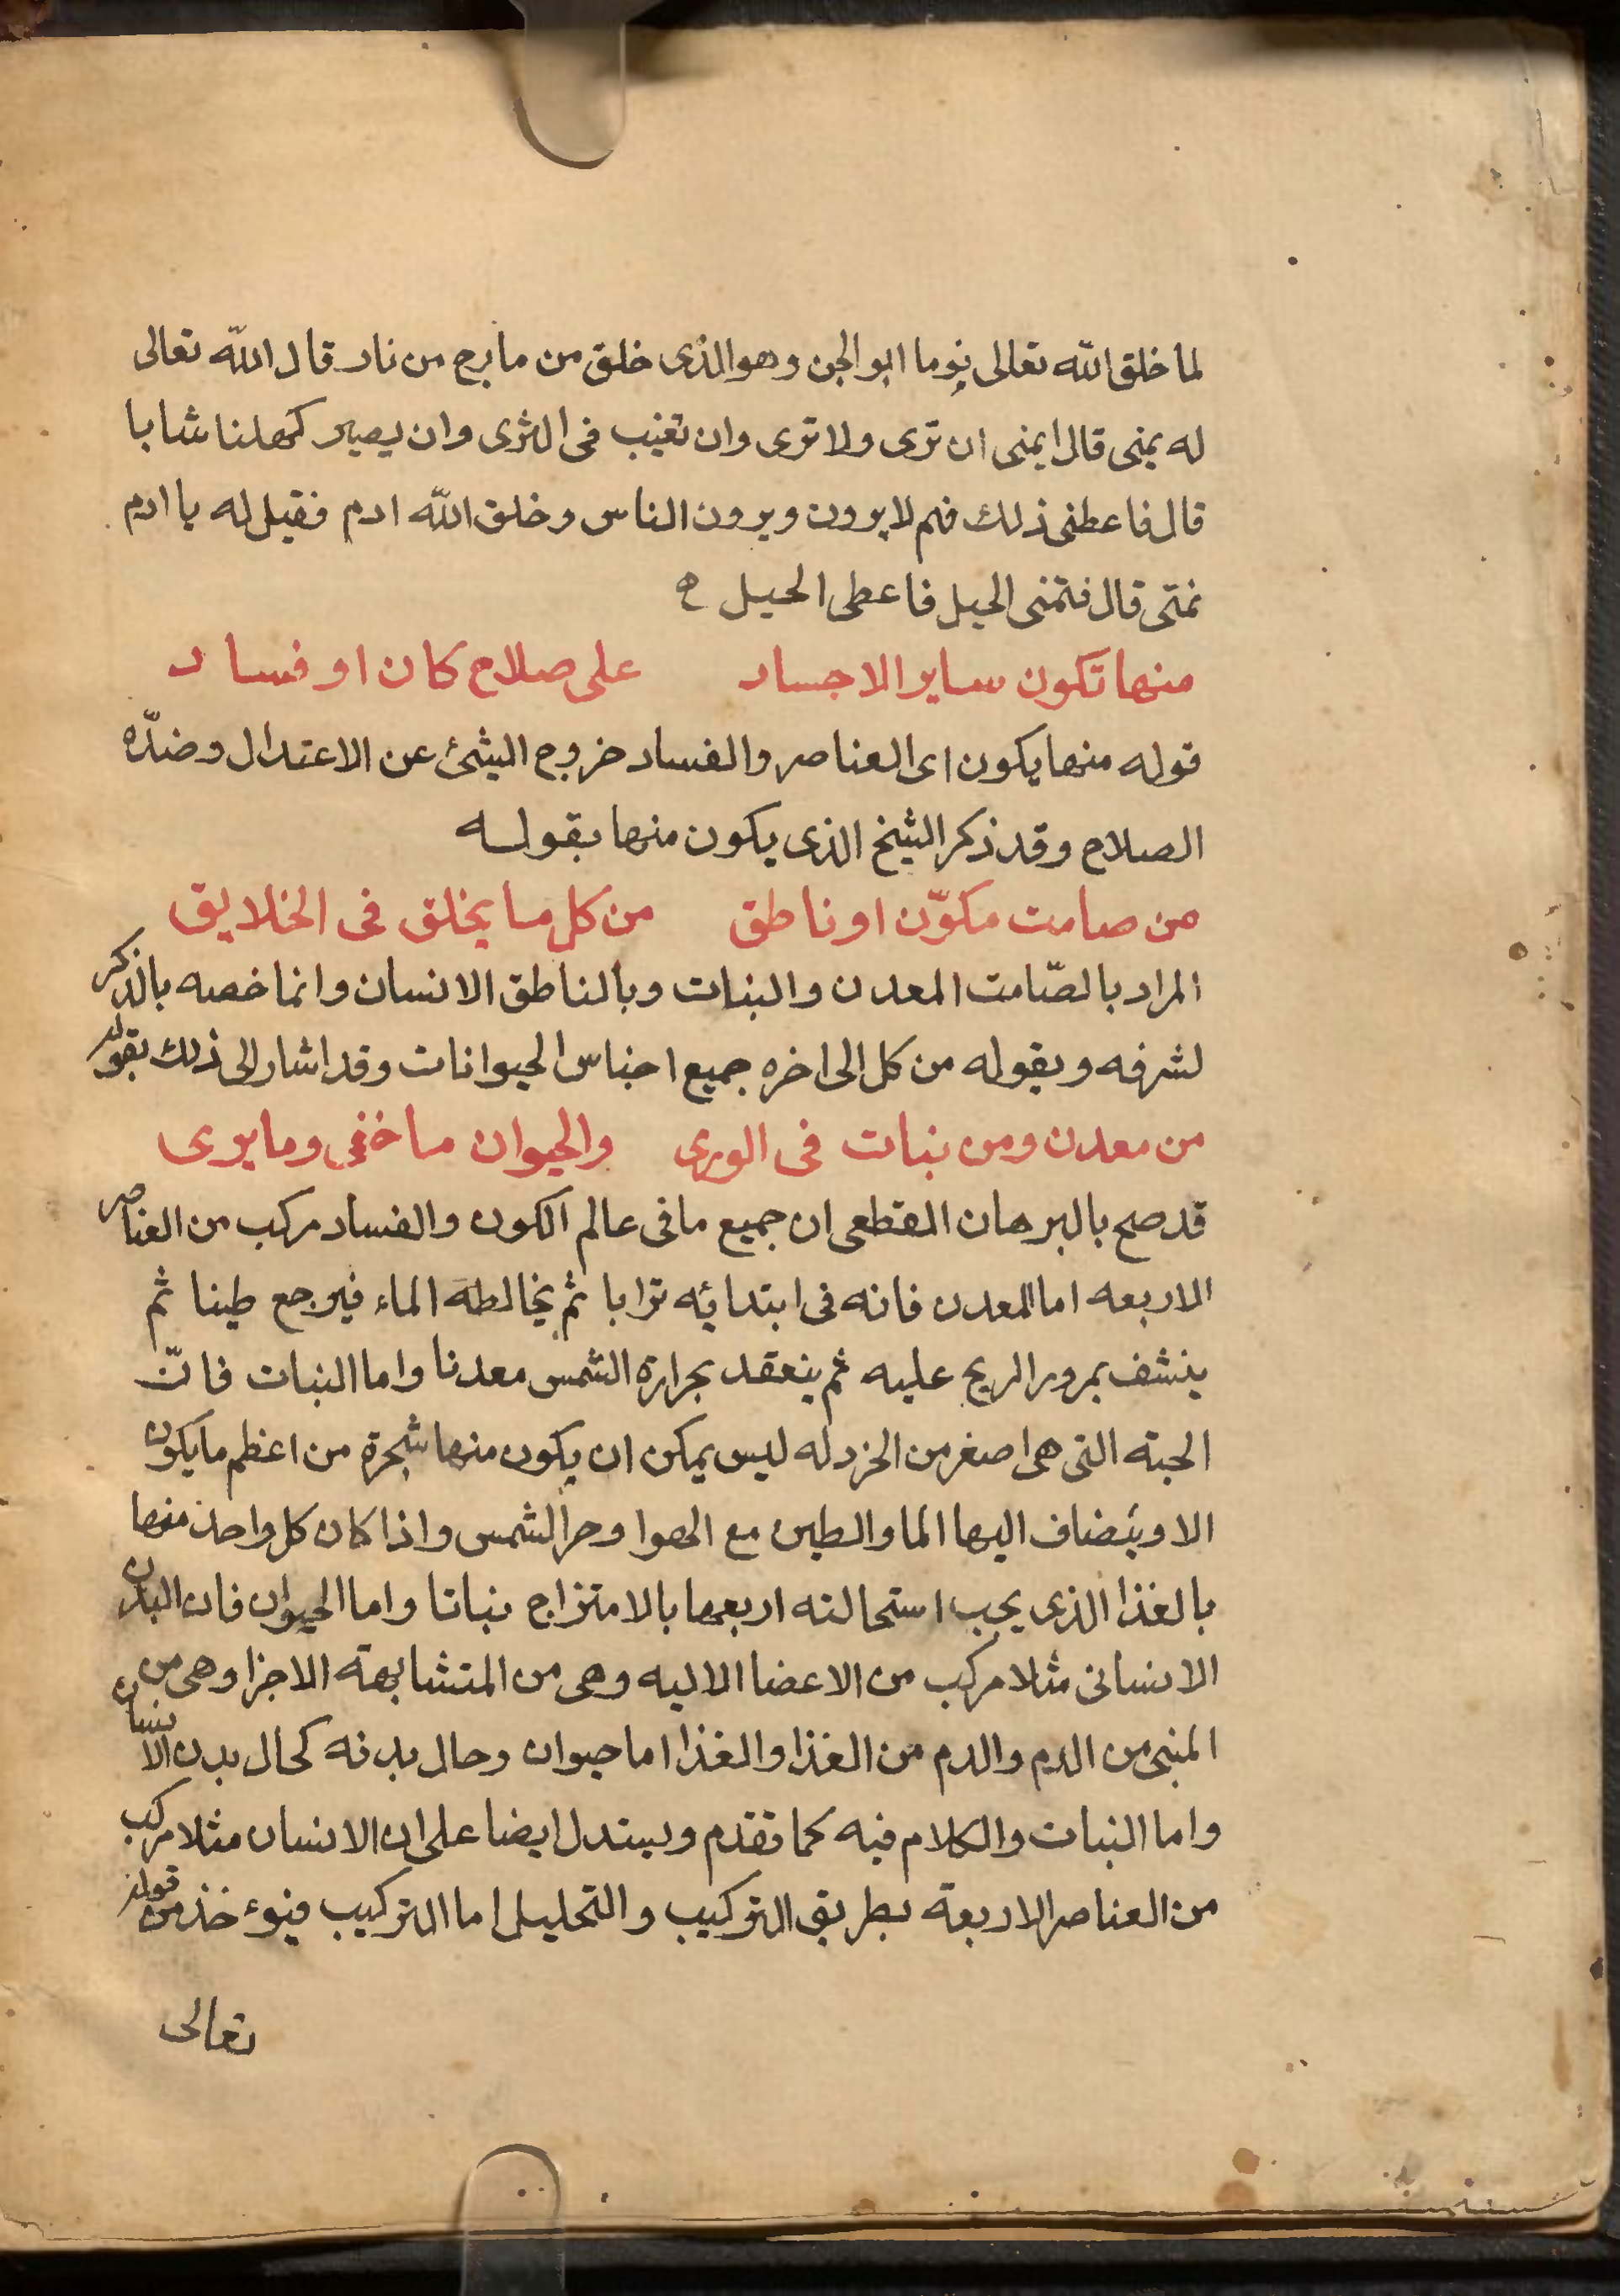 لما خلق الله تعالى نوما ابو الجن وهو الذى خلق من مارج من نار قال الله تعالى
له يمنى قال ايمنى ان ترى ولا ترى وان تغيب فى الثرى وان يصير كهلنا شابا
قال فاعطنى ذلك فهم لا يرون ويرون الناس وخلق الله ادم فقيل له يا ادم
تمنى قال فتمنى الحيل فاعطى الحيل
منها تكون ساير الاجساد على صلاح كان او فساد
قوله منها يكون اى العناصر والفساد خروج الشئ عن الاعتدال وضدّه
الصلاح وقد ذكر الشيخ الذى يكون منها بقوله
من صامت مكوّن او ناطق من كل ما يخلق فى الخلايق
المراد بالصّامت المعدن والنبات وبالناطق الانسان وانما خصه بالذكر
لشرفه وبقوله من كل الى اخره جميع اجناس الحيوانات وقد اشار الى ذلك بقوله
من معدن ومن نبات فى الورى والحيوان ما خفى وما يرى
قد صح بالبرهان القطعى ان جميع ما فى عالم الكون والفساد مركب من العناصر
الاربعه اما المعدن فانه فى ابتدائه ترابا ثم يخالطه الماء فيرجع طينا ثم
ينشف بمرور الريح عليه ثم ينعقد بحرارة الشمس معدنا واما النبات فانّ
الحبة التى هى اصغر من الخردله ليس يمكن ان يكون منها شجرة من اعظم ما يكون
الا وينضاف اليها الما والطين مع الهوا وحر الشمس واذا كان كل واحد منها
بالغذا الذى يجب استحالته اربعها بالامتزاج نباتا واما الحيوان فان البدن
الانسانى مثلا مركب من الاعضا الاليه وهى من المتشابهة الاجزا وهى من
المنى من الدم والدم من الغذا والغذا اما حيوان وحال بدنه كحال بدن الانسان
واما النبات والكلام فيه كما تقدم ويستدل ايضا على ان الانسان مثلا مركب
من العناصر الاربعة بطريق التركيب والتحليل اما التركيب فيوء خذ من قوله
تعالى